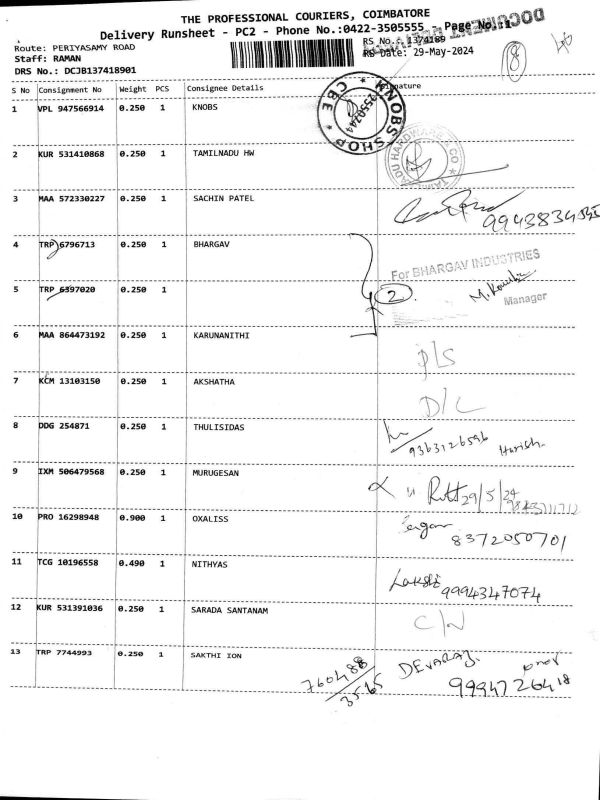 THE PROFESSIONAL COURIERS, COIMBATORE
Delivery Runsheet - PC2 - Phone No.:0422-3505555 - Page No.:1
Route: PERIYASAMY ROAD
RS No.: 1374189
Staff: RAMAN
RS Date: 29-May-2024
DRS No.: DCJB137418901
18
S No Consignment No Weight PCS Consignee Details Signature
1 VPL 947566914 0.250 1 KNOBS
KNOBS SHOP * CBE *
2 KUR 531410868 0.250 1 TAMILNADU HW
HARDWARE & CO
3 MAA 572330227 0.250 1 SACHIN PATEL
4 TRP 6796713 0.250 1 BHARGAV
For BHARGAV INDUSTRIES
5 TRP 6397020 0.250 1
2
Manager
6 MAA 864473192 0.250 1 KARUNANITHI
P/S
7 KCM 13103150 0.250 1 AKSHATHA
D/L
8 DDG 254871 0.250 1 THULISIDAS
9363126596 Harish
9 IXM 506479568 0.250 1 MURUGESAN
29/5/24
10 PRO 16298948 0.900 1 OXALISS
8372050701
11 TCG 10196558 0.490 1 NITHYAS
9994347074
12 KUR 531391036 0.250 1 SARADA SANTANAM
C/N
13 TRP 7744993 0.250 1 SAKTHI ION
760488
3565
DEVARAJ
9994726418